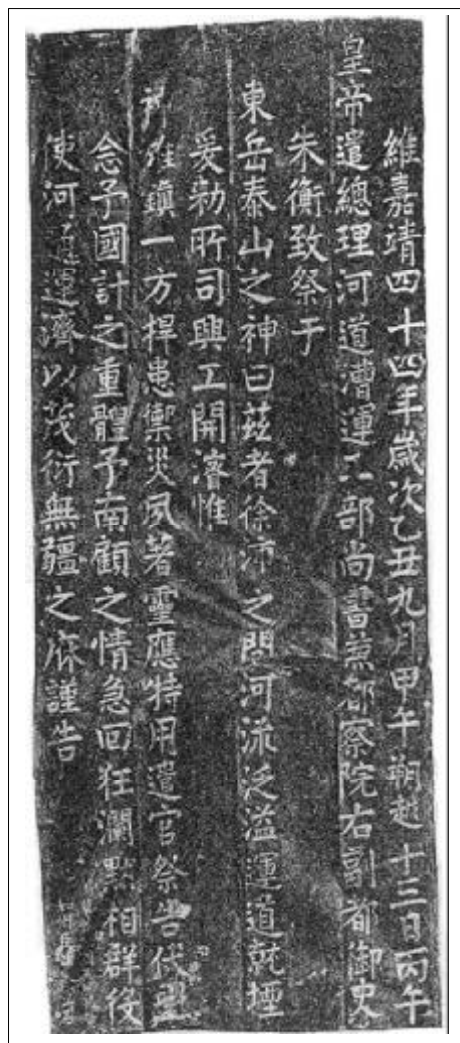 維嘉靖四十四年歲次乙丑九月甲午朔越十三日丙午
皇帝遣總理河道漕運工部尚書兼都察院右副都御史
朱衡致祭于
東岳泰山之神曰茲者徐沛之間河流泛溢運道就堙
爰勑所司興工開濬惟
神雄鎮一方捍患禦災夙著靈應特用遣官祭告代望
念予國計之重體予南顧之情急回狂瀾默相群役
使河道運濟以茂衍無疆之庥謹告